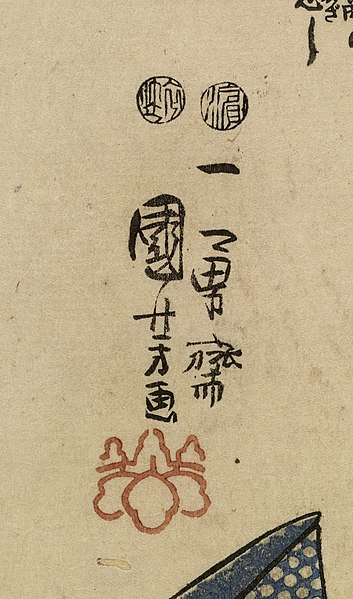 濱
一勇齋
國芳画